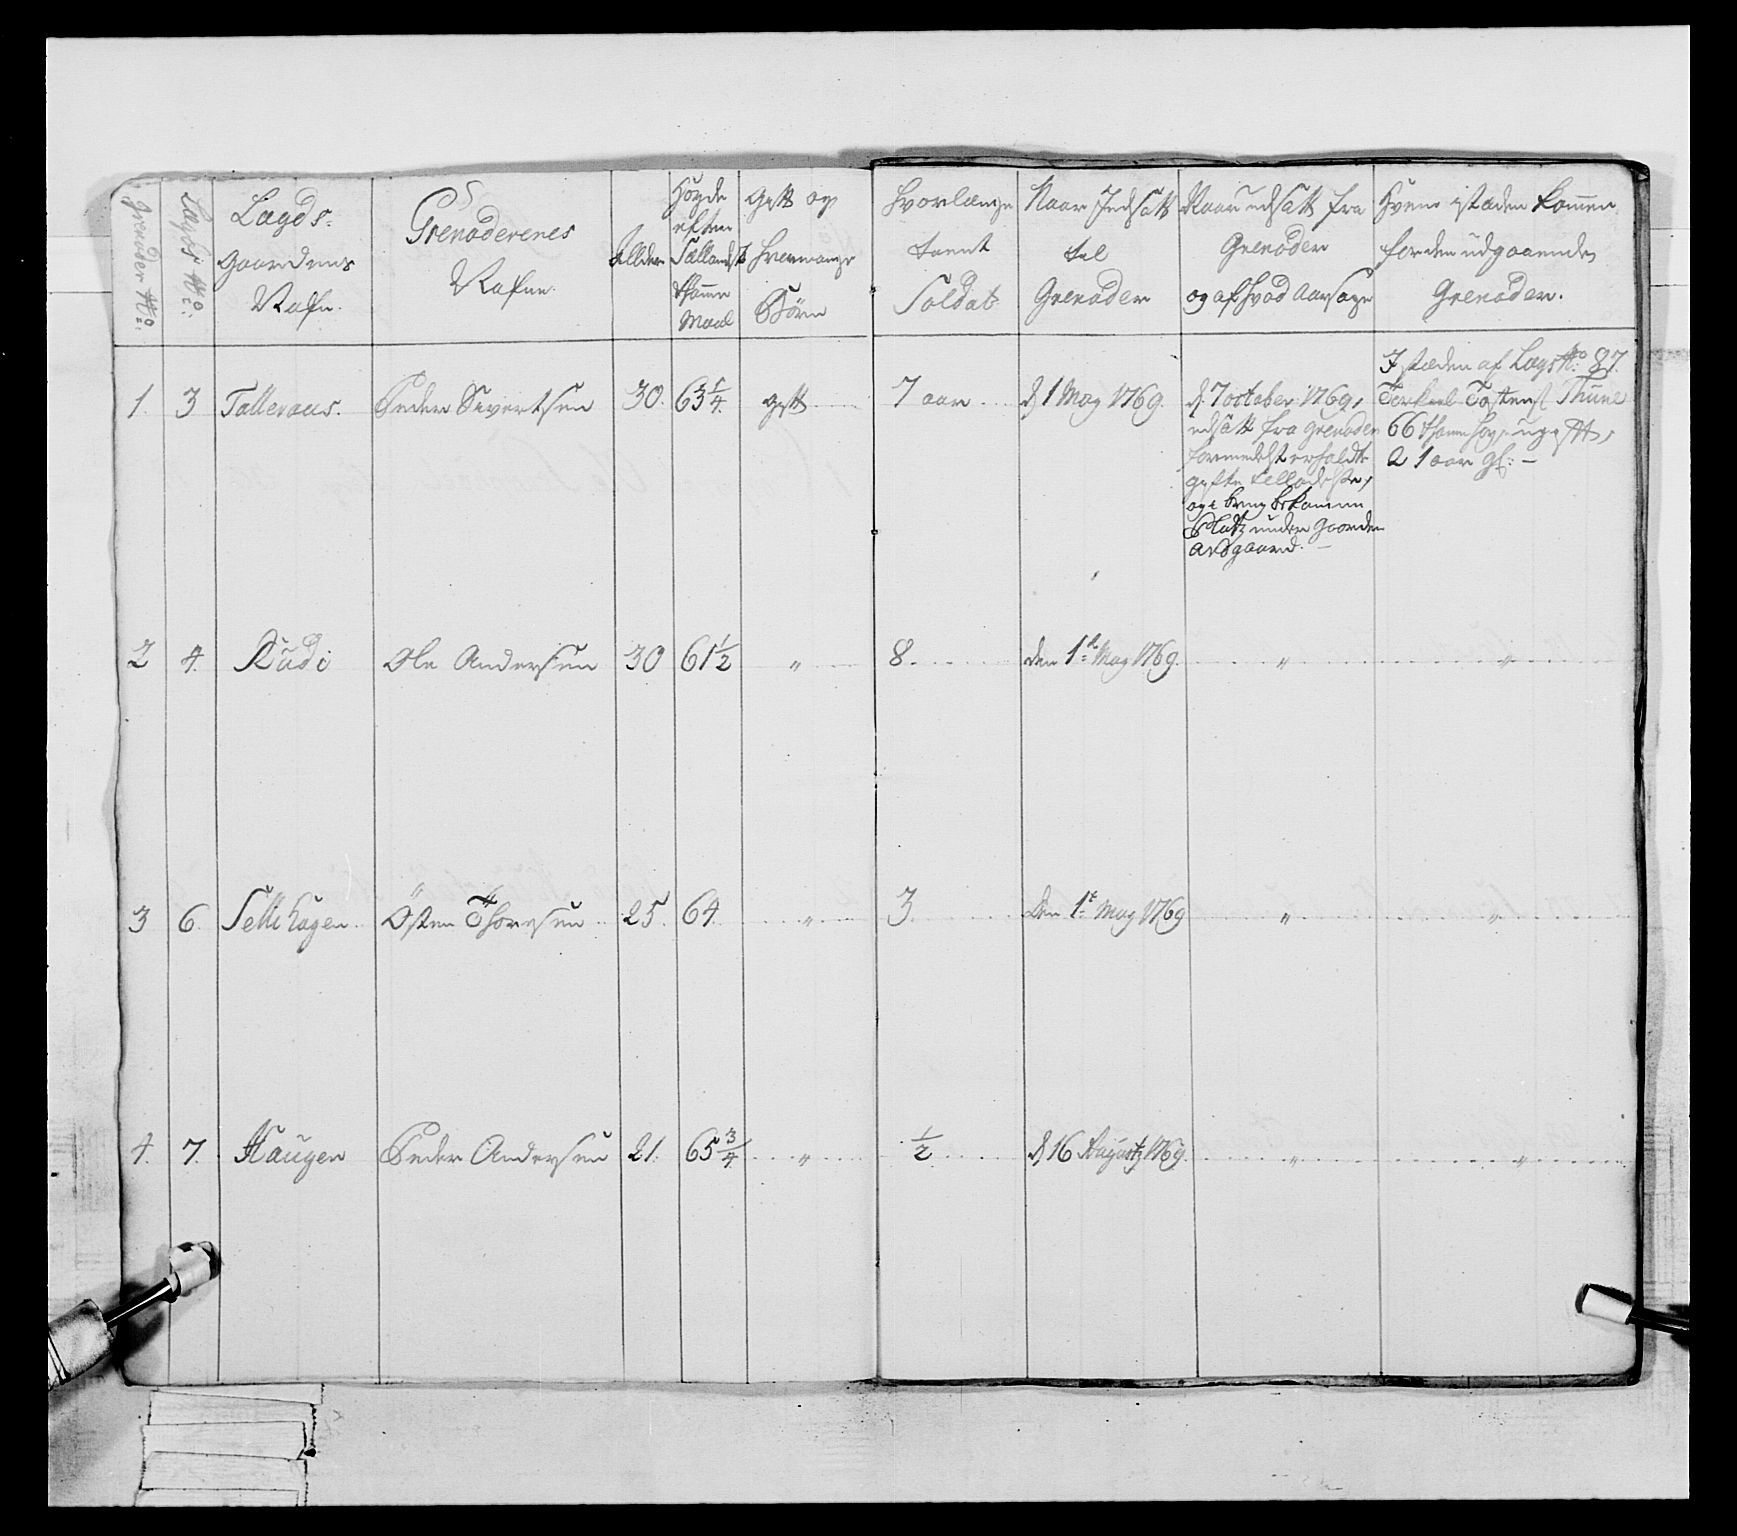 Grenader No:
Lægds No:
Lægds-
Gaardens
Nafn.
Grenaderenes
Nafne
Allder
Høyde
efter
Sællands
Tomme
Maal
Gift og
hvormange
Børn
Hvorlænge
tient
Soldat
Naar Indsatt
til
Grenader
Naar udsatt fra
Grenader
og af hvad Aarsage
Hvem istæden kommen
for den udgaaende
Grenader.
1. 3 Talleraas. Peder Sivertsen 30. 63 1/4. gift 7 aar d 1 May 1769.
d. 7 october 1769,
udsatt fra Grenader
formedelst erholdte
og
Platz under Gaarden
I stæden af Lægs No: 87.
Torkeel Tostens: Thune
66 tommer høy ugift,
21 aar gl: —
2 4. Rudi Ole Andersen 30 61 1/2 " 8. den 1te May 1769. " "
3 6. Østen Thoresen 25. 64. " 3. den 1te May 1769 " "
4. 7. Haugen Peder Andersen 21. 65 3/4 " 1/2 d. 16 Augustj 1769. " "